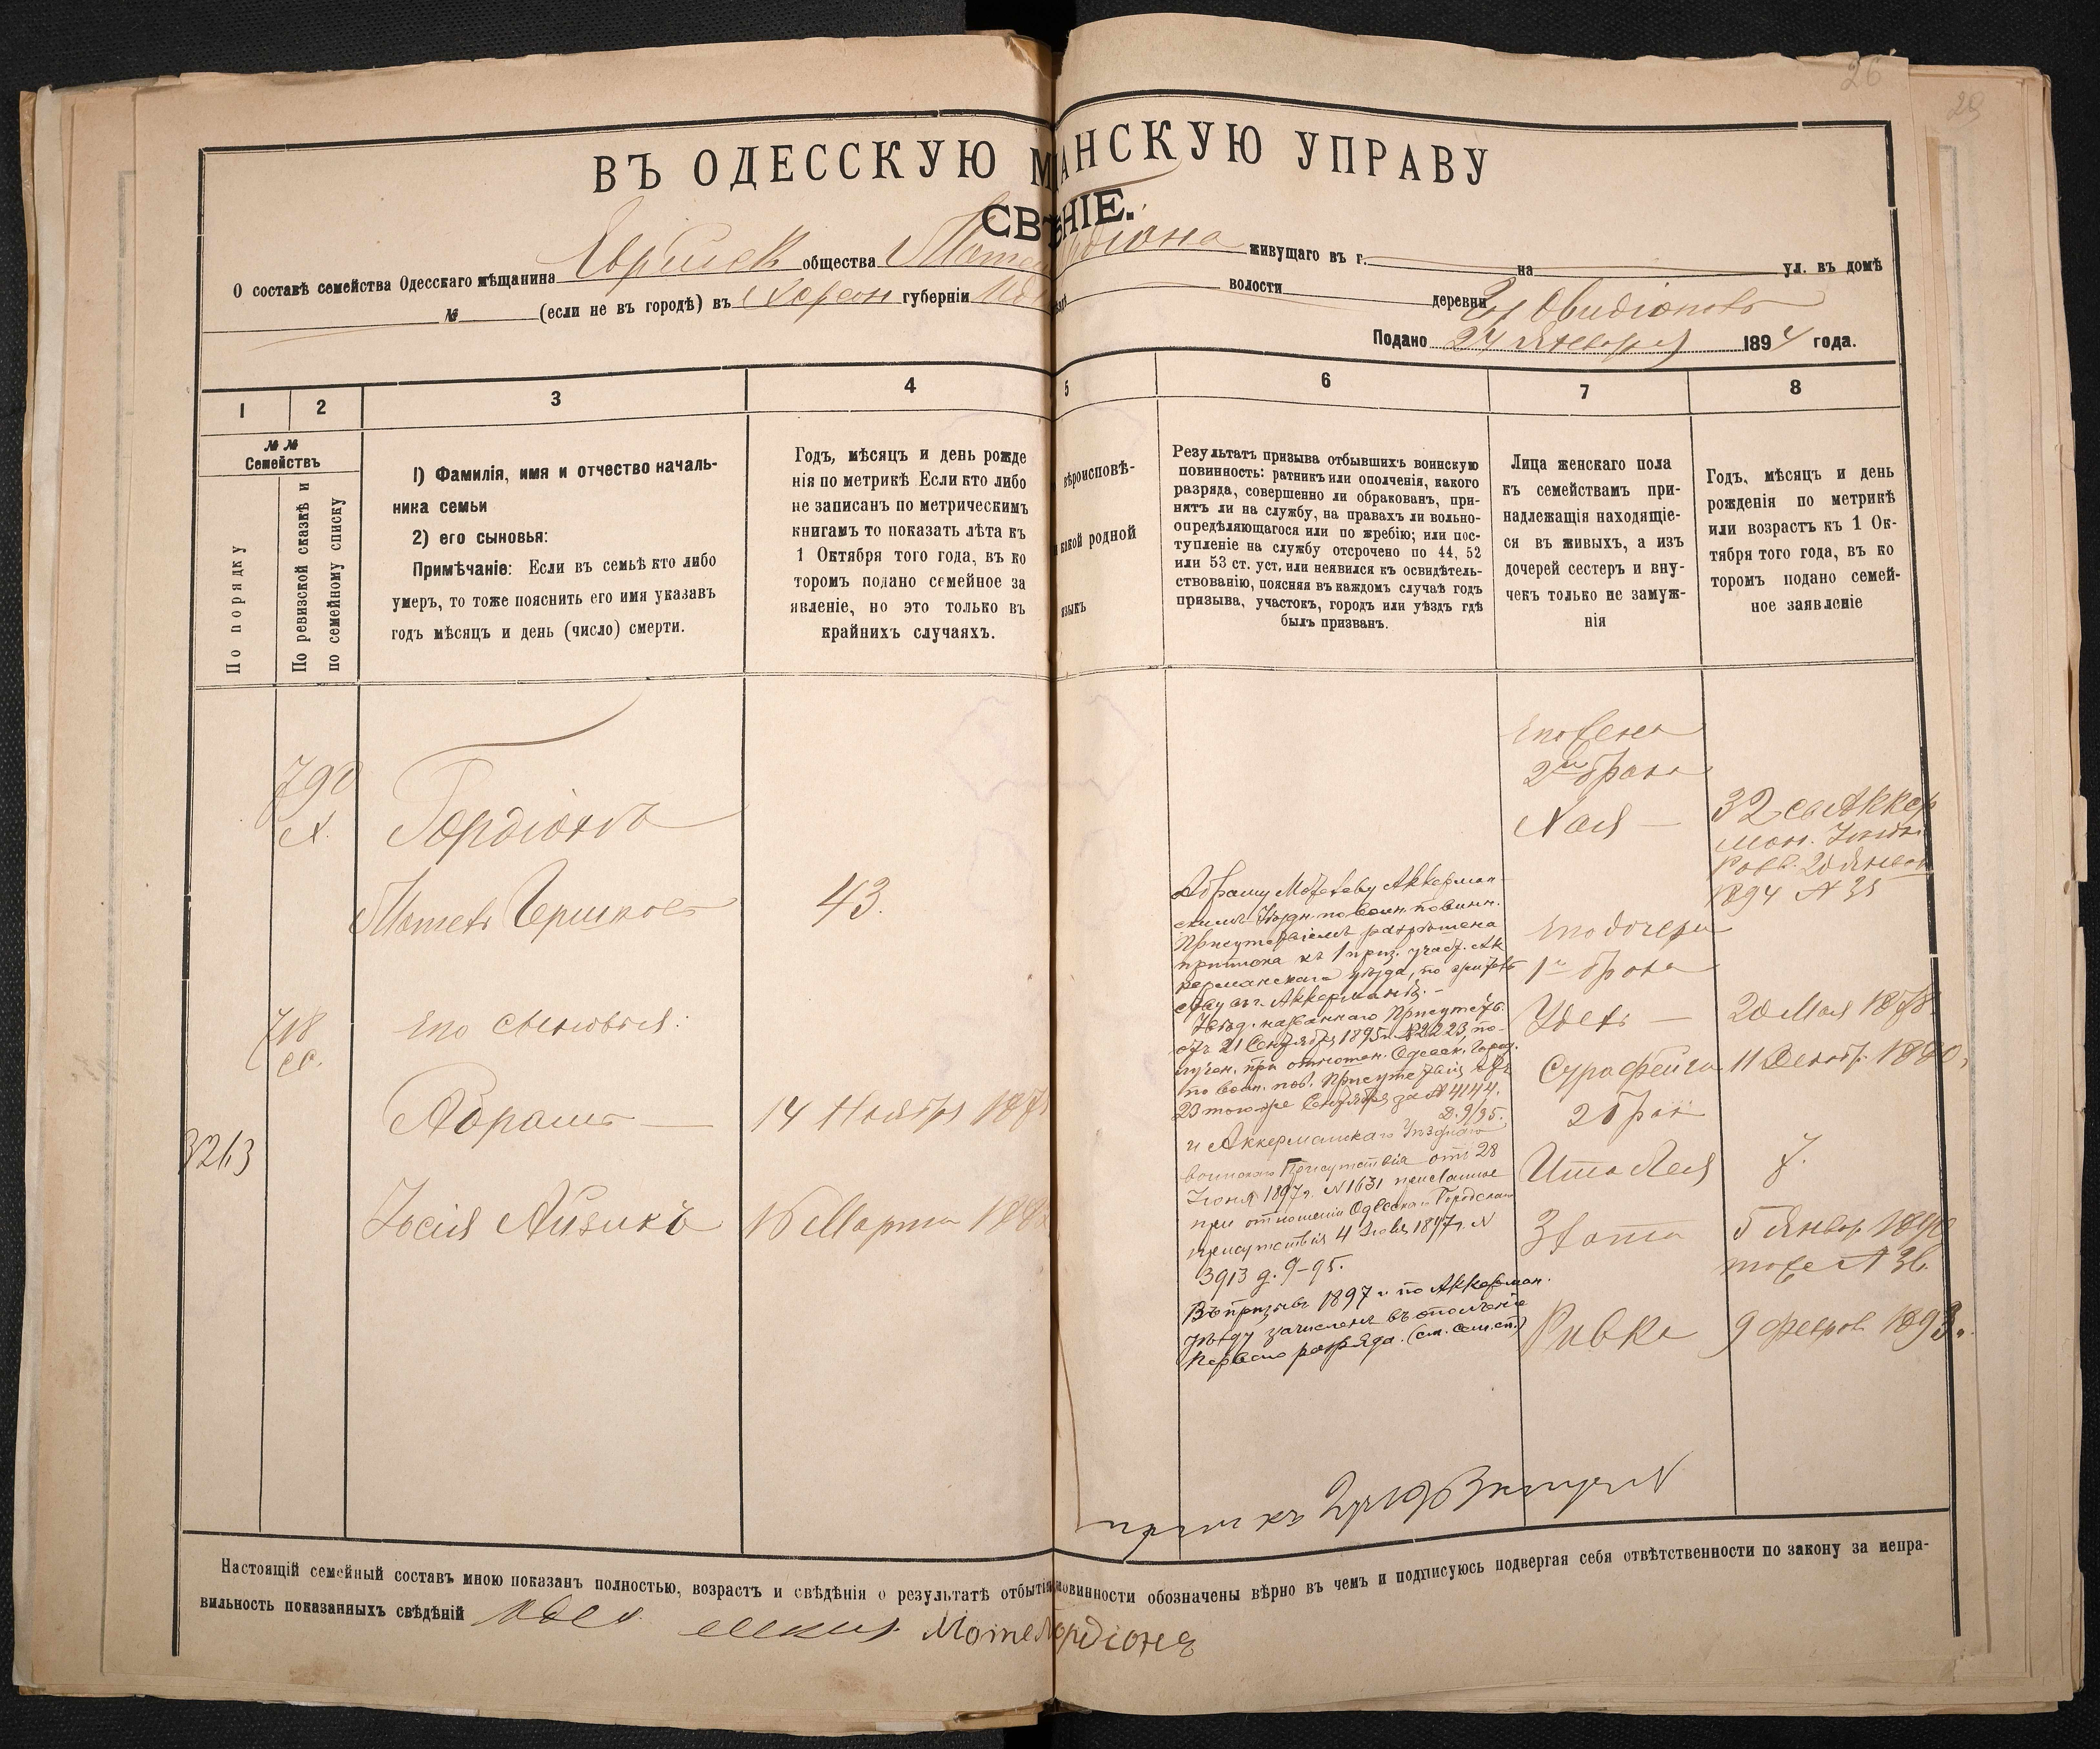 26
29
ВЪ ОДЕССКУЮ М АНСКУЮ УПРАВУ
СВѢ НІЕ.
О составѣ семейства Одесскаго мѣщанина Еврейск общества Мотел рдіона живущаго въ г. на ул. въ домѣ
№ (если не въ городѣ) въ Херсон губерніи волости деревни Овидіополь
Подано 24 Января 1894 года.
1 2 3 4 5 6 7 8
№ №
Семействъ
По порядку
По ревизской сказкѣ и
по семейному списку
1) Фамилія, имя и отчество началь-
ника семьи
2) его сыновья:
Примѣчаніе: Если въ семьѣ кто либо
умеръ, то тоже пояснить его имя указавъ
годъ мѣсяцъ и день (число) смерти.
Годъ, мѣсяцъ и день рожде
нія по метрикѣ Если кто либо
не записанъ по метрическимъ
книгамъ то показать лѣта къ
1 Октября того года, въ ко
торомъ подано семейное за
явленіе, но это только въ
крайнихъ случаяхъ.
вѣроисповѣ-
какой родной
языкъ
Результатъ призыва отбывшихъ воинскую
повинность: ратникъ или ополченія, какого
разряда, совершенно ли обракованъ, при-
нятъ ли на службу, на правахъ ли вольно-
опредѣляющагося или по жребію; или пос-
тупленіе на службу отсрочено по 44, 52
или 53 ст. уст. или неявился къ освидѣтель-
ствованію, поясняя въ каждомъ случаѣ годъ
призыва, участокъ, городъ или уѣздъ гдѣ
былъ призванъ.
Лица женскаго пола
къ семействамъ при-
надлежащія находящіе-
ся въ живыхъ, а изъ
дочерей сестеръ и вну-
чекъ только не замуж-
нія
Годъ, мѣсяцъ и день
рожденія по метрикѣ
или возрастъ къ 1 Ок-
тября того года, въ ко
торомъ подано семей-
ное заявленіе
790
Гордіонъ
Мотель Гершков
43.
718
его сыновья:
Абрамъ — 14 Ноября 187
3213
Іосія Айзикъ 16 Марта 188
Абраму Мотелеву Аккерман-
скимъ Уѣздн. по воин. повинн.
Присутствіемъ разрѣшена
приписка къ 1 приз. участ. Ак
керманскаго уѣзда, по жительст
ву въ г. Аккерманѣ. -
названнаго Присутств.
отъ 21 Сентября 1895 г. № 2223, по-
лучен. при отношен. Одесск. Город.
по воин. пов. Присутствія отъ
23 того же Сентября за № 4144.
Д. 9/95.
и Аккерманскаго Уѣзднаго
воинскаго Присутствія отъ 28
Іюня 1897 г. № 1631 присланное
при отношеніи Одесскаго Городскаго
присутствія 4 Іюля 1897 г. №
3913 д. 9-95.
Въ призывъ 1897 г. по Аккерман.
уѣзду зачисленъ въ ополченіе
перваго разряда. (см. сем. сп.)
его жена
2го брака
Хая — 32
1894 № 35
его дочери
1го брака
Удель — 20 Мая 1878.
Сура Фейга 11 Декабр. 1880
2 брак
Ита Лея 7.
Злота 5 Январ 1890
тоже № 36.
Ривка 9 Феврал 1893.
Настоящій семейный составъ мною показанъ полностью, возрастъ и свѣдѣнія о результатѣ отбытія повинности обозначены вѣрно въ чемъ и подписуюсь подвергая себя отвѣтственности по закону за непра-
вильность показанныхъ свѣдѣній Мотел Гордіонъ